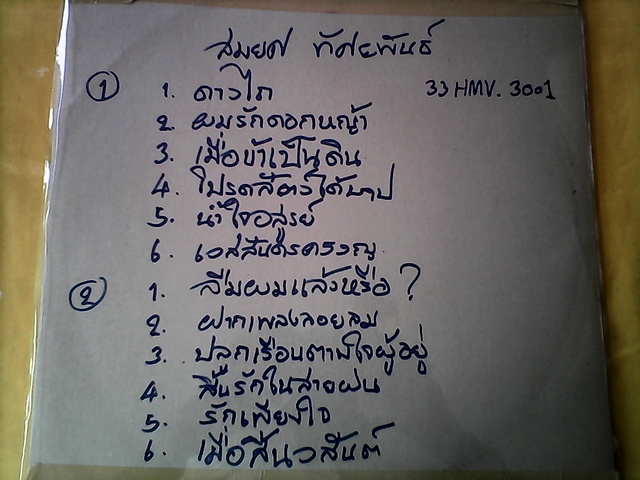 สมยศ ทัศนพันธ์
① 1. ดาวไถ 33 HMV. 3001
2. ผมรักดอกหญ้า
3. เมื่อข้าเป็นดิน
4. โปรดสัตว์ได้บาป
5. น้ำใจอสูรย์
6.
② 1. ลืมผมแล้วหรือ ?
2. ฝากเพลงลอยลม
3. ปลูกเรือนตามใจผู้อยู่
4. สิ้นรักในสายฝน
5. รักเพียงใจ
6. เมื่อสิ้นวสันต์